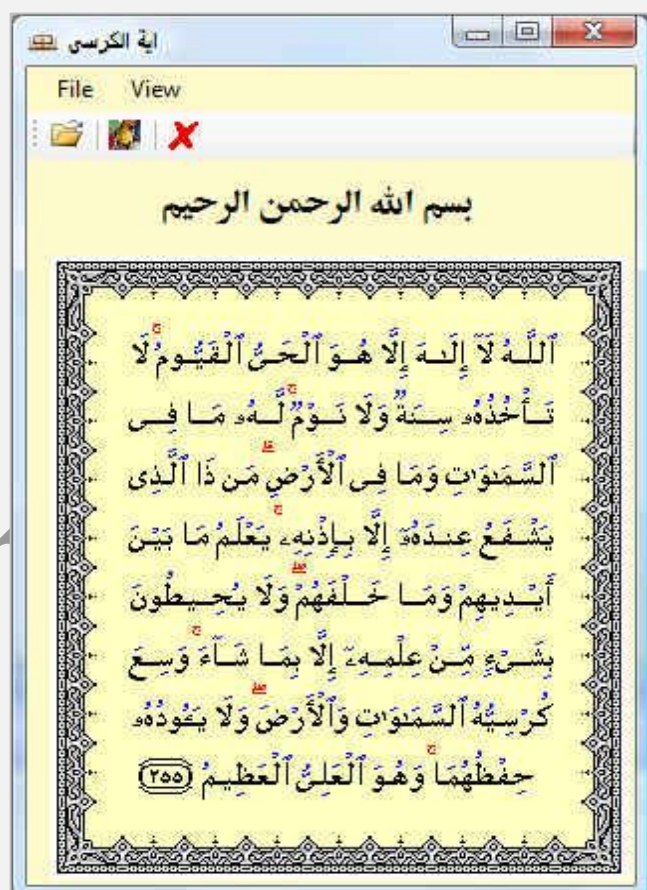 اية الكرسي
File View
بسم الله الرحمن الرحيم
ٱللَّهُ لَآ إِلَـٰهَ إِلَّا هُوَ ٱلْحَىُّ ٱلْقَيُّومُ ۚ لَا
تَأْخُذُهُۥ سِنَةٌ وَلَا نَوْمٌ ۚ لَّهُۥ مَا فِى
ٱلسَّمَـٰوَٰتِ وَمَا فِى ٱلْأَرْضِ ۗ مَن ذَا ٱلَّذِى
يَشْفَعُ عِندَهُۥٓ إِلَّا بِإِذْنِهِۦ ۚ يَعْلَمُ مَا بَيْنَ
أَيْدِيهِمْ وَمَا خَلْفَهُمْ ۖ وَلَا يُحِيطُونَ
بِشَىْءٍ مِّنْ عِلْمِهِۦٓ إِلَّا بِمَا شَآءَ ۚ وَسِعَ
كُرْسِيُّهُ ٱلسَّمَـٰوَٰتِ وَٱلْأَرْضَ ۖ وَلَا يَـُٔودُهُۥ
حِفْظُهُمَا ۚ وَهُوَ ٱلْعَلِىُّ ٱلْعَظِيمُ ٢٥٥